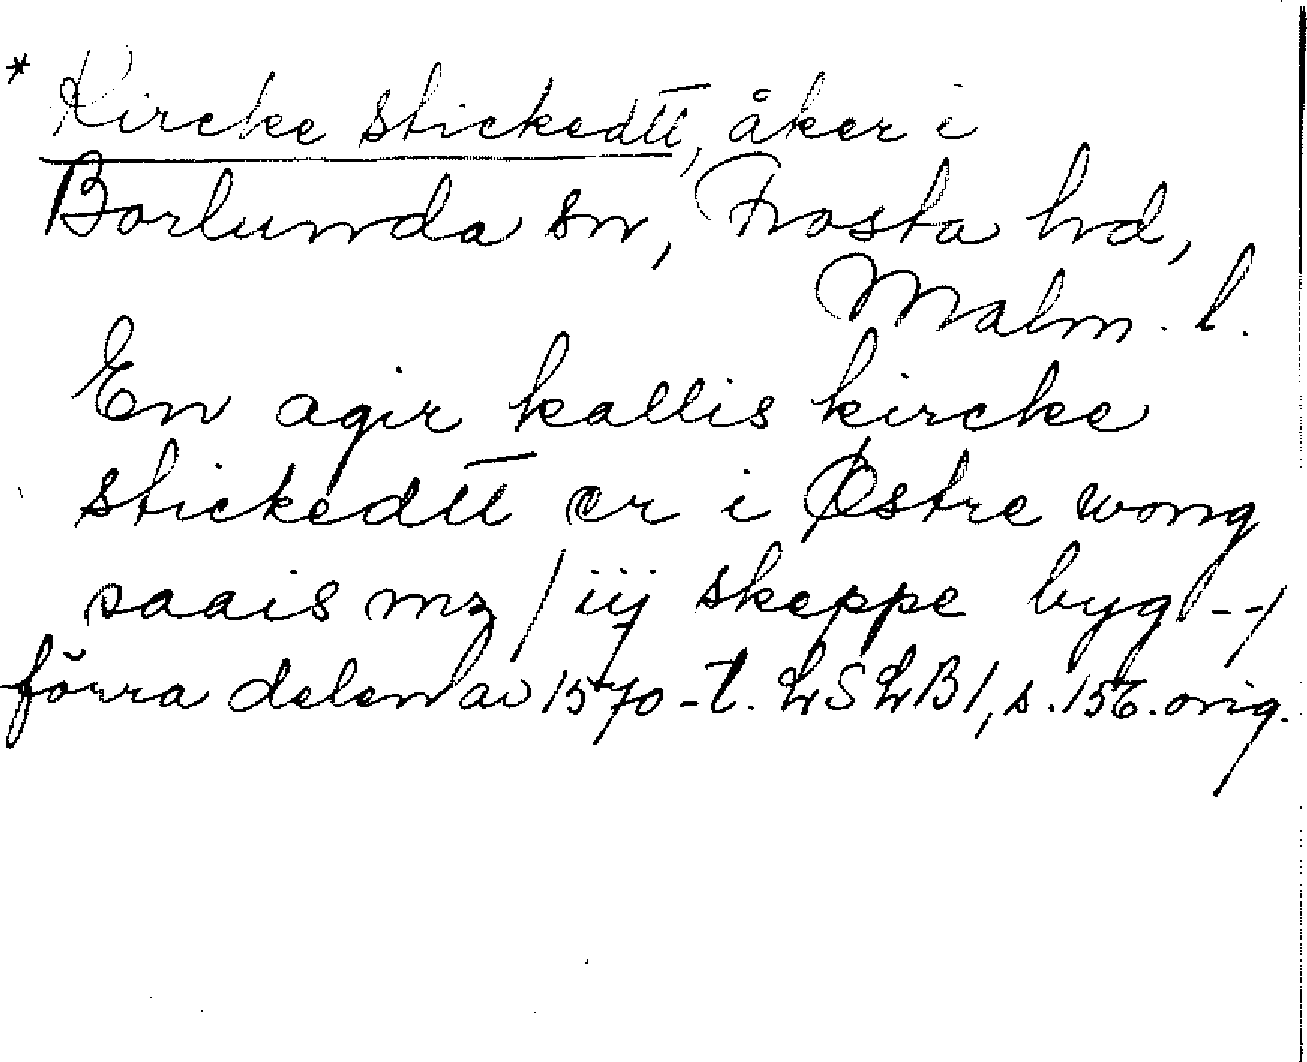 * Kircke stickedtt, åker i
Borlunda sn, Frosta hd,
Malm. l.
En agir kallis kircke
stickedtt er i Østre wong
saais mz / iij skeppe byg --/
förra delen av 1570-t. LSLB1, s. 156. orig.